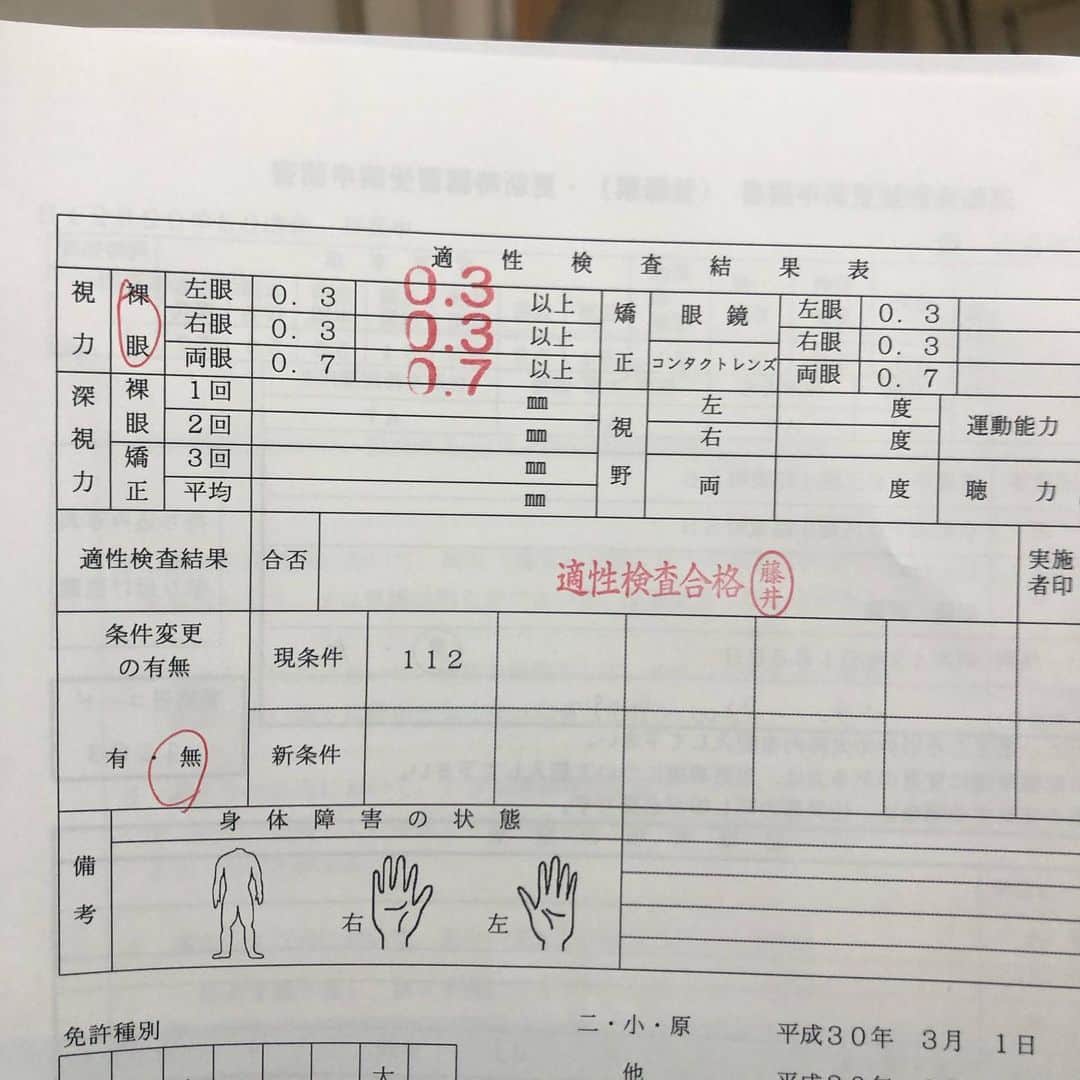 適性検査結果表
視力 裸眼 左眼 0.3 0.3 以上 矯正 眼鏡 左眼 0.3
右眼 0.3 0.3 以上 コンタクトレンズ 右眼 0.3
両眼 0.7 0.7 以上 両眼 0.7
深視力 裸眼 矯正 1回 mm 視野 左 度 運動能力
2回 mm 右 度
3回 mm 両 度 聴力
平均 mm
適性検査結果 合否 適性検査合格 藤井 実施者印
条件変更の有無 現条件 112
有・無 新条件
備考 身体障害の状態
右 左
免許種別 二・小・原 平成30年 3月 1日
他
大